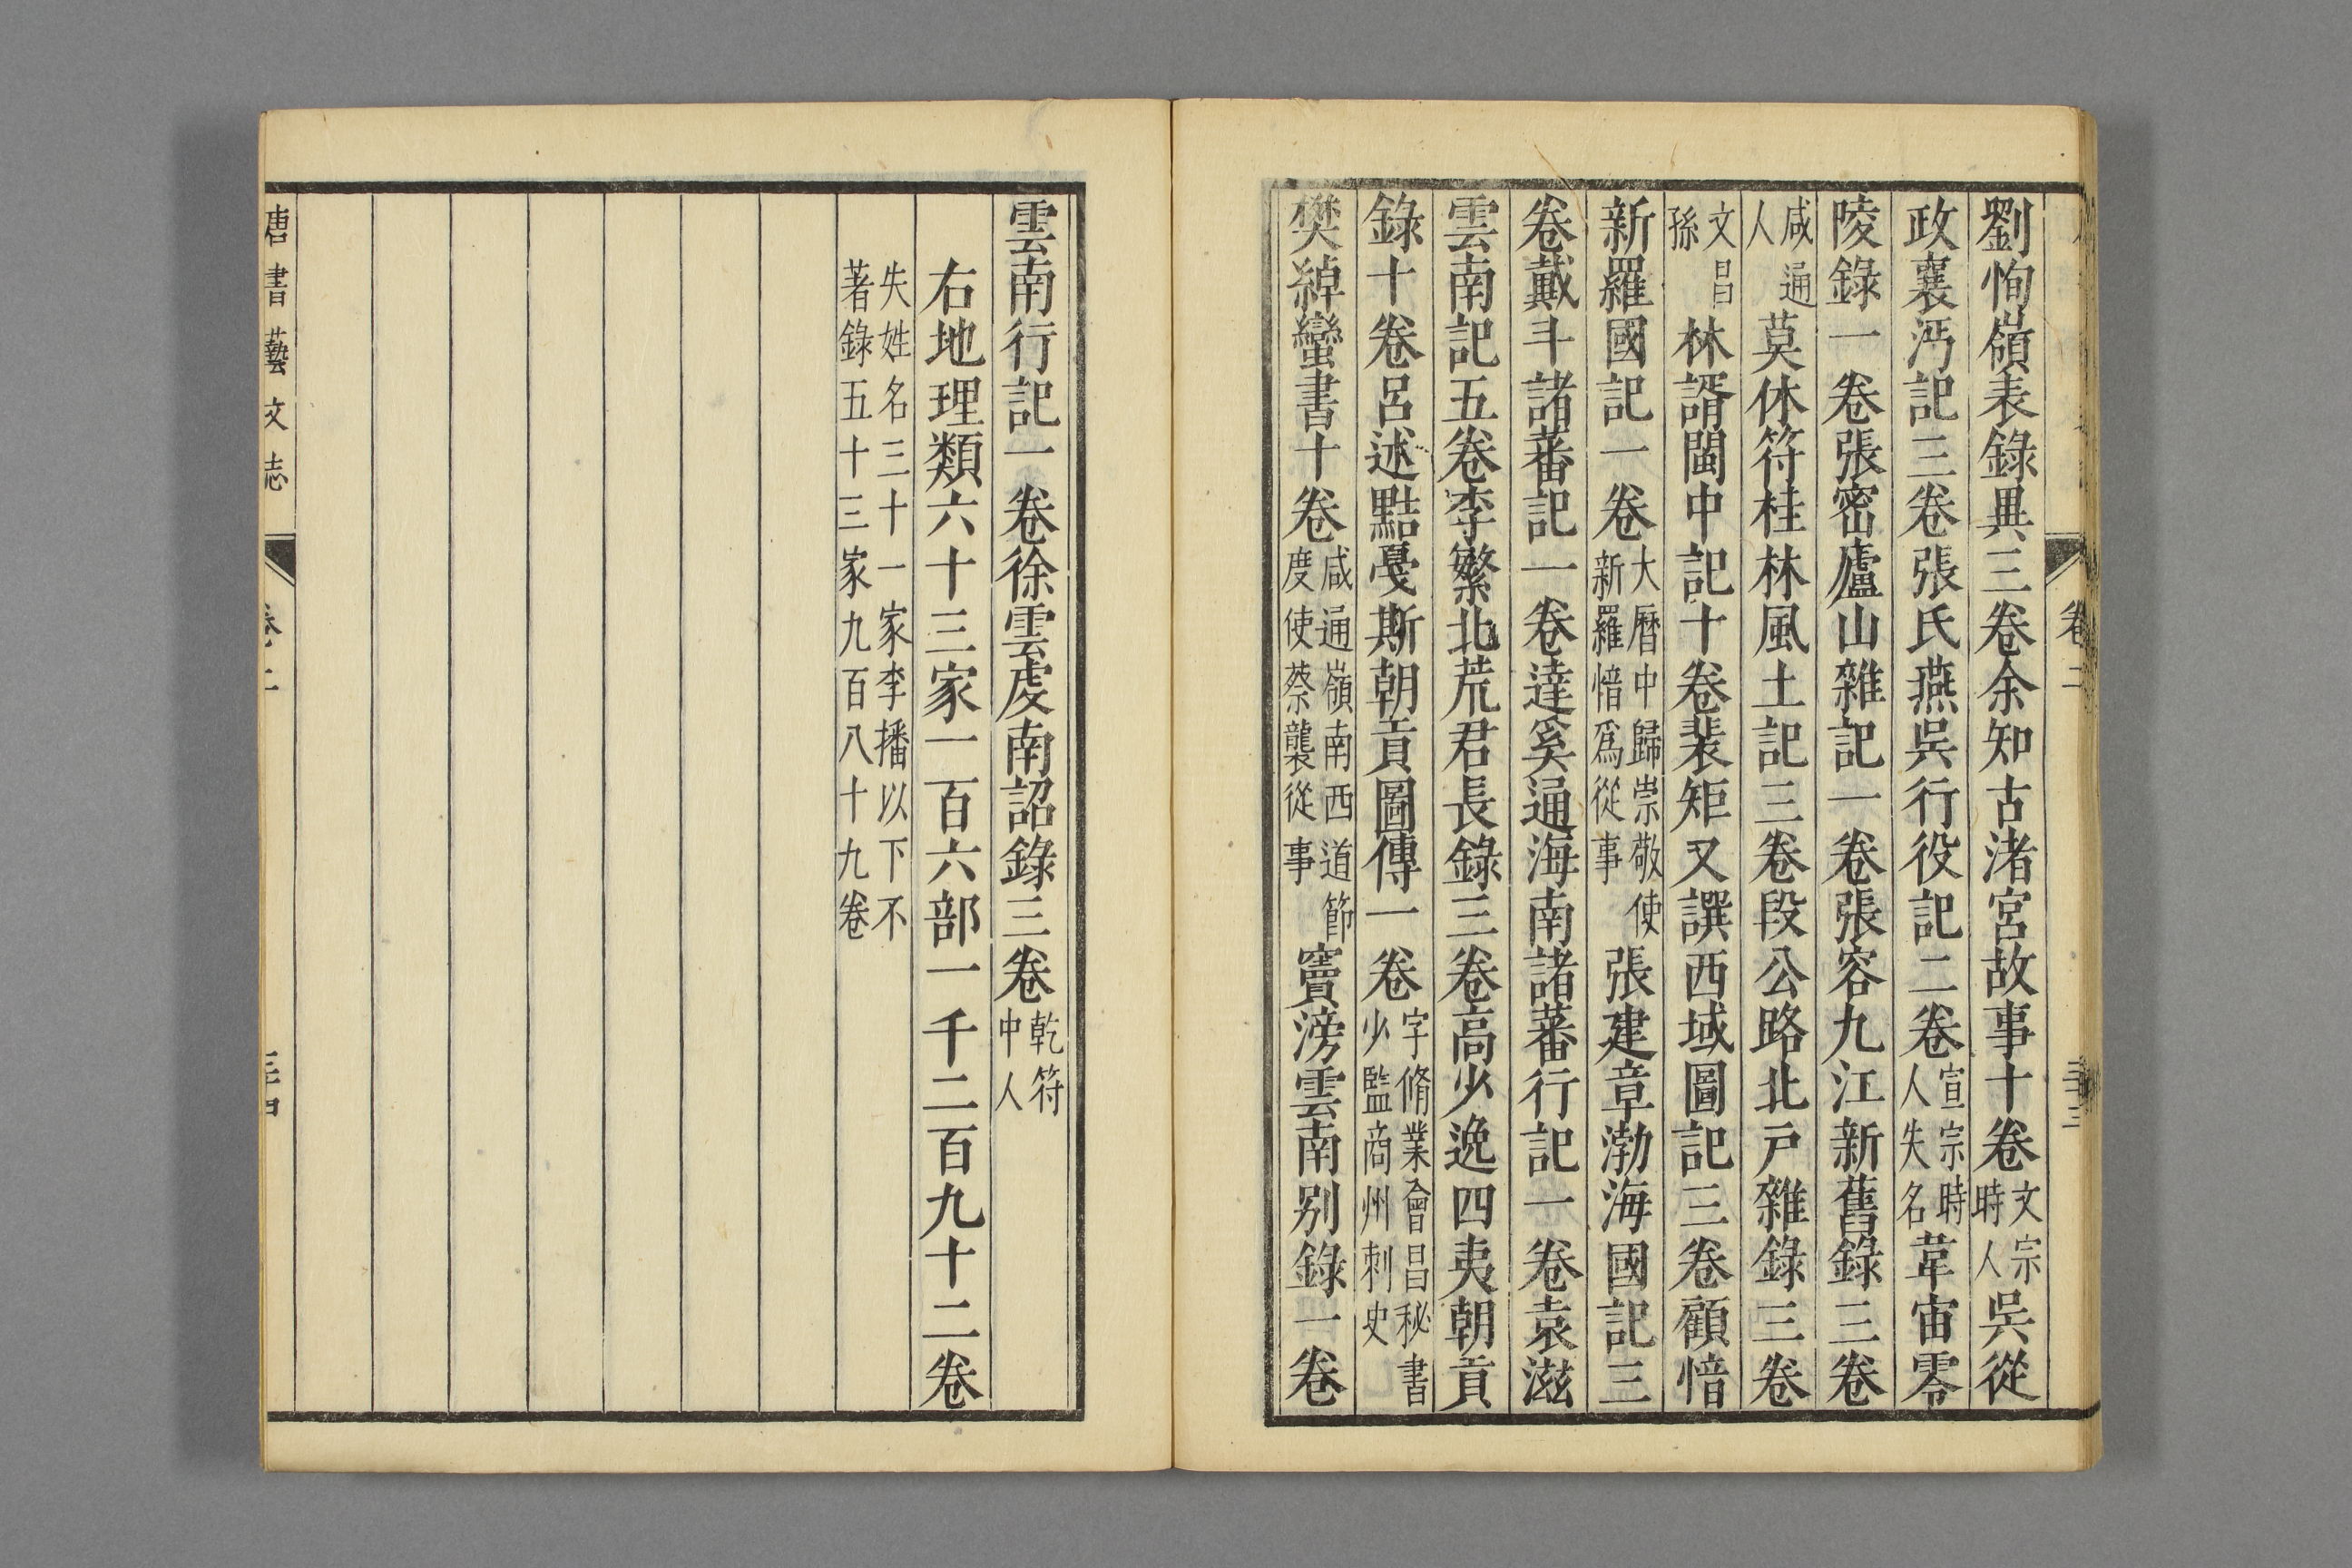 卷二
三十三
劉恂嶺表錄異三卷余知古渚宮故事十卷文宗時人吳從
政襄沔記三卷張氏燕吳行役記二卷宣宗時人失名韋宙零
陵錄一卷張密廬山雜記一卷張容九江新舊錄三卷
咸通人莫休符桂林風土記三卷段公路北戶雜錄三卷
文昌孫林諝閩中記十卷裴矩又譔西域圖記三卷顧愔
新羅國記一卷大曆中歸崇敬使新羅愔爲從事張建章渤海國記三
卷戴斗諸蕃記一卷達奚通海南諸蕃行記一卷袁滋
雲南記五卷李繁北荒君長錄三卷高少逸四夷朝貢
錄十卷呂述黠戛斯朝貢圖傳一卷字脩業會昌秘書少監商州刺史
樊綽蠻書十卷咸通嶺南西道節度使蔡襲從事竇滂雲南别錄一卷
雲南行記一卷徐雲虔南詔錄三卷乾符中人
右地理類六十三家一百六部一千二百九十二卷
失姓名三十一家李播以下不
著錄五十三家九百八十九卷
唐書藝文志
卷二
三十四